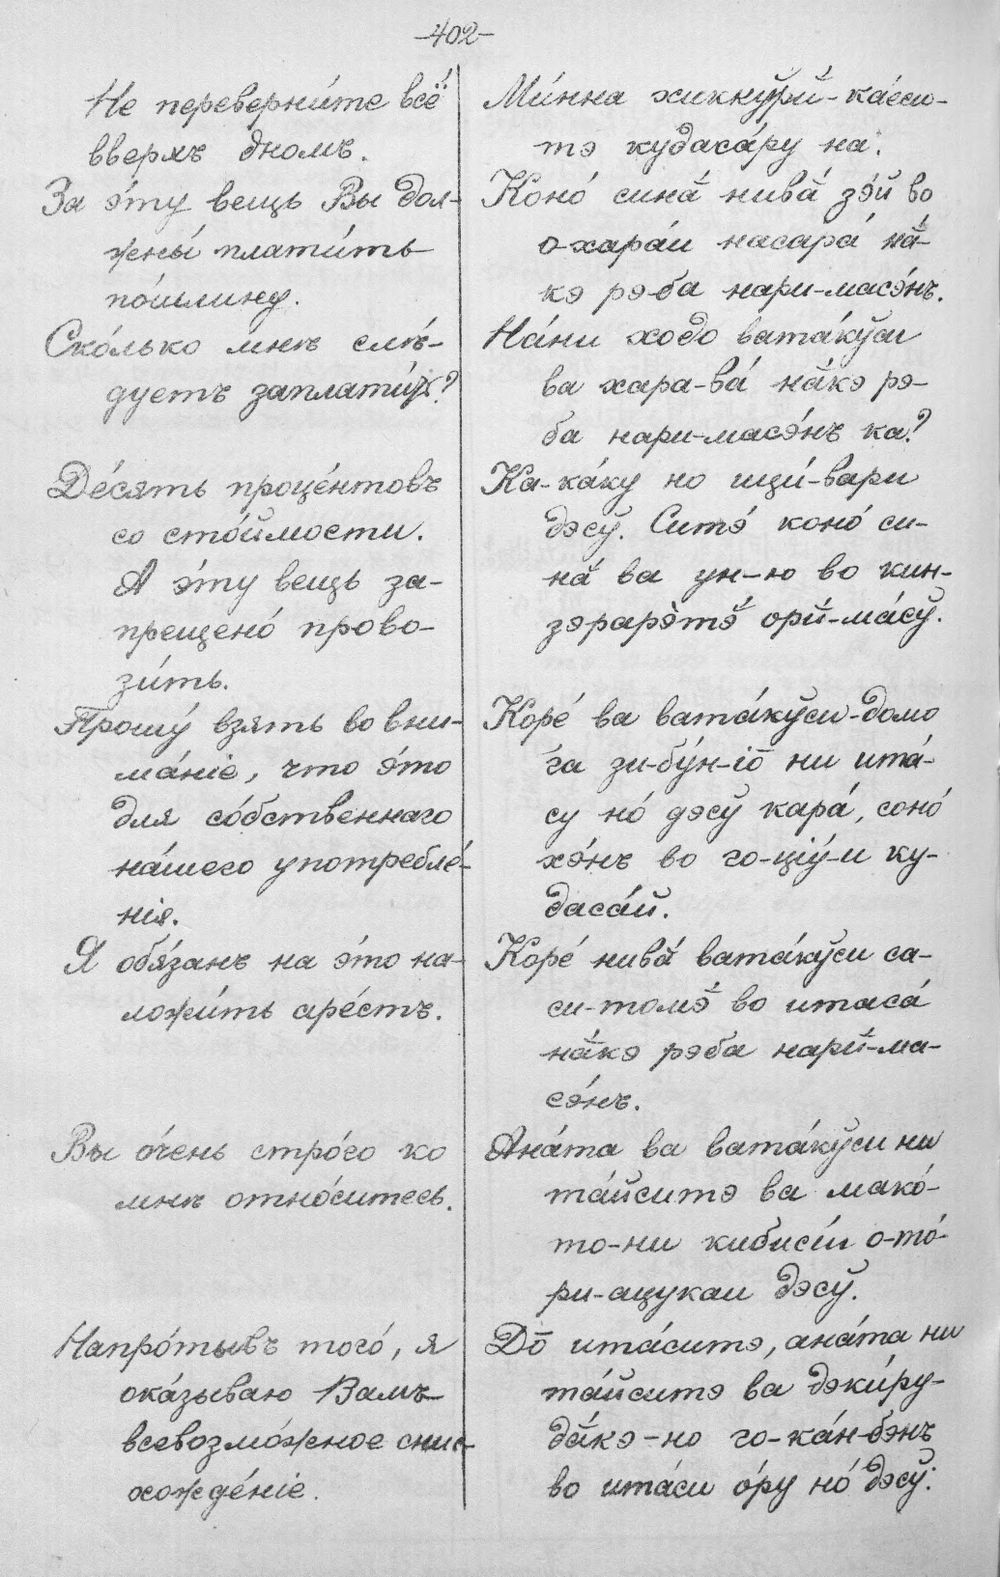 -402-
Не переверни́те всё
вверхъ дномъ.
За э́ту вещь Вы дол-
жны́ плати́ть
по́шлину.
Ско́лько мнѣ слѣ́-
дуетъ заплати́ть?
Де́сять проце́нтовъ
со сто́имости.
А э́ту вещь за-
прещено́ прово-
зи́ть.
Прошу́ взять во вни-
ма́ніе, что э́то
для со́бственнаго
на́шего употребле́-
нія.
Я обя́занъ на э́то на-
ложи́ть аре́стъ.
Вы о́чень стро́го ко
мнѣ отно́ситесь.
Напро́тывъ того́, я
ока́зываю Вамъ
всевозмо́жное снис-
хожде́ніе.
Ми́нна хиккӯрй-ка́еси-
тэ кудаса́ру на.
Коно́ сина́ нива́ зэ́й во
о-хара́и насара́ на́-
кэ рэ-ба нари-масэ́нъ.
На́ни ходо вата́кўси
ва хара-ва́ на́кэ рэ-
ба нари-масэ́нъ ка?
Ка-ка́ку но ици́-вари
дэсў. Ситэ́ коно́ си-
на́ ва ун-ю во кин-
зэрарэ̀тэ́ орй-ма́сў.
Коре́ ва вата́кўси-домо
га зи-бу́н-іō ни ита́-
су но́ дэсў кара́, соно́
хэ́нъ во го-ціу́-и ку-
даса́й.
Коре́ нива́ вата́кўси са-
си-томэ́ во итаса́
на́кэ рэба нарй-ма-
сэ́нъ.
Ана́та ва вата́кўси ни
та́йситэ ва мако́-
то-ни кибиси́и о-то́-
ри-ацукаи дэсў.
До̄ ита́ситэ, ана́та ни
та́йситэ ва дэки́ру-
да́кэ-но го-ка́н-бэнъ
во ита́си о́ру но́ дэсў.